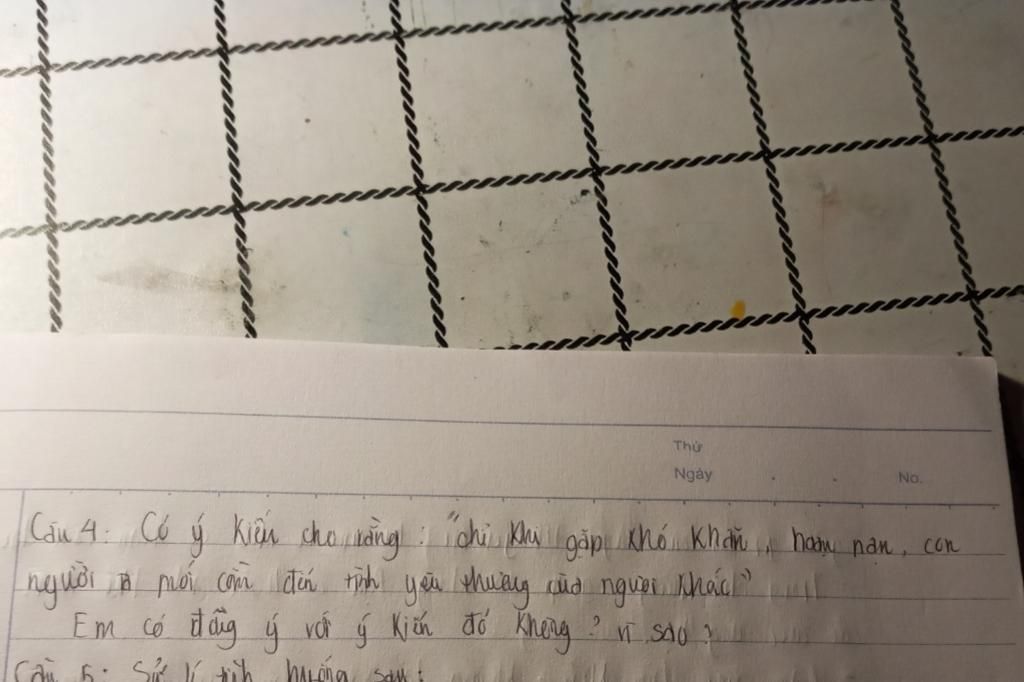 Thứ
Ngày . . No.
Câu 4: Có ý kiến cho rằng: "chỉ khi gặp khó khăn, hoạn nạn, con
người mới cần đến tình yêu thương của người khác"
Em có đồng ý với ý kiến đó không? vì sao?
Câu 5: Sử lí tình huống sau: